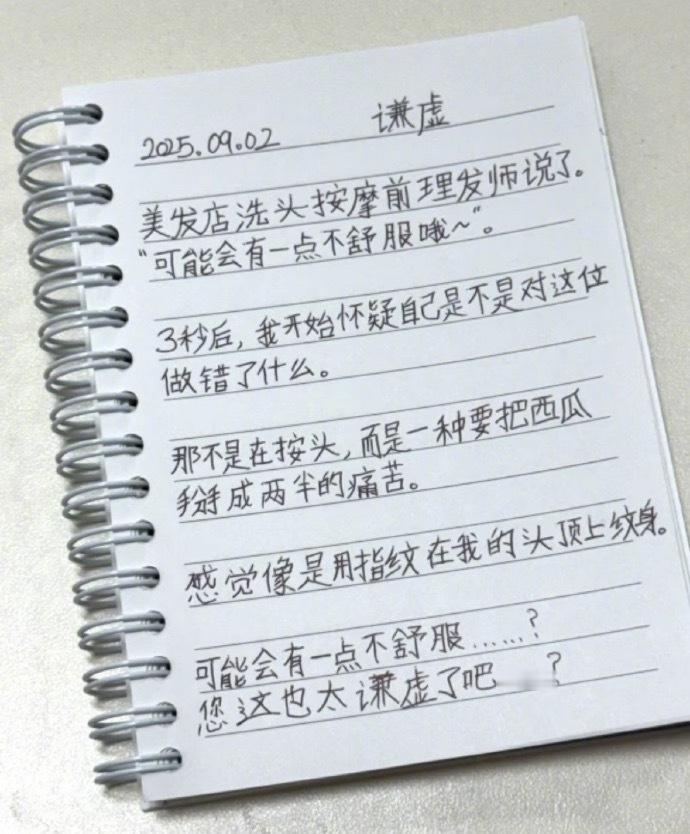 2025.09.02 谦虚
美发店洗头按摩前理发师说了。
“可能会有一点不舒服哦~”。
3秒后，我开始怀疑自己是不是对这位
做错了什么。
那不是在按头，而是一种要把西瓜
掰成两半的痛苦。
感觉像是用指纹在我的头顶上纹身。
可能会有一点不舒服……？
您这也太谦虚了吧 ？